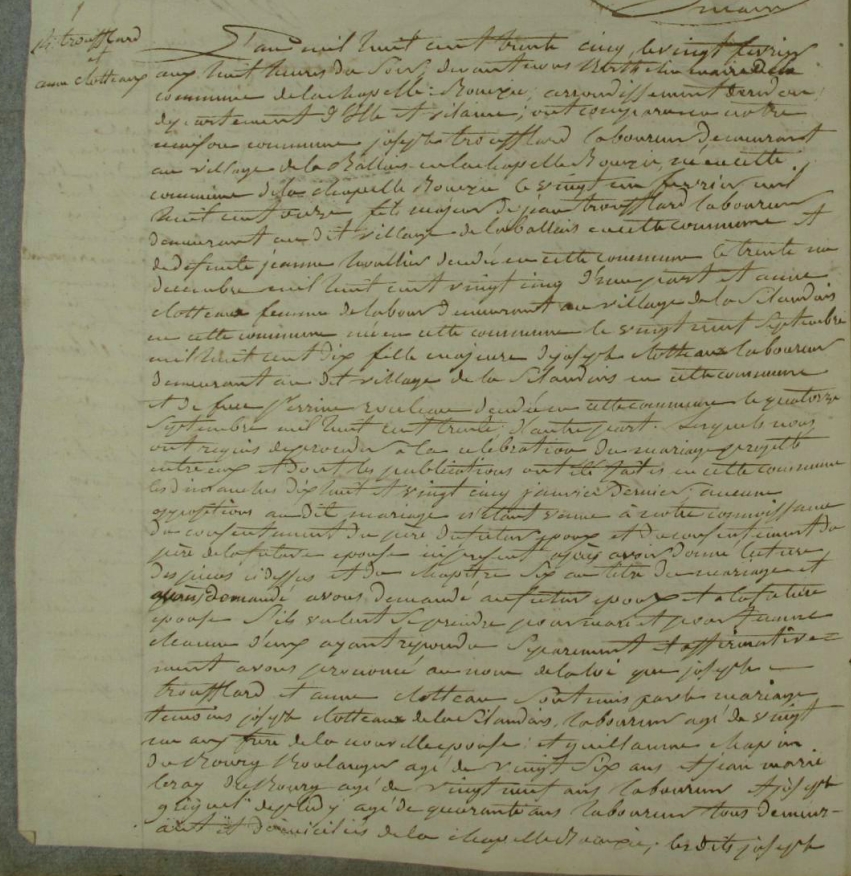 maire
j. troufflard
et
anne clotteaux
L'an mil huit cent trente cinq, le vingt fevrier
aux huit heures du Soir, devant nous maire de la
commune de la chapelle Bouexic, arrondissement de redon
departement d'Ille et vilaine, ont comparu en notre
maison commune joseph troufflard laboureur demeurant
au village de la Ballais en la chapelle Bouexic, né en cette
commune de la chapelle Bouexic le vingt un fevrier mil
huit cent onze fils majeur de jean troufflard laboureur
demeurant au dit village de la ballais en cette commune et
de defunte jeanne décédée en cette commune le trente un
decembre mil huit cent vingt cinq d'une part et anne
clotteau femme de labour demeurant au village de la
en cette commune née en cette commune le vingt neuf Septembre
mil huit cent dix fille majeure de joseph clotteau laboureur
demeurant au dit village de la en cette commune
et de feue Perrine décédée en cette commune le quatorze
Septembre mil huit cent trente d'autre part. Lesquels nous
ont requis de proceder à la célébration du mariage projetté
entre eux et dont les publications ont été faites en cette commune
les dimanches dix huit et vingt cinq janvier dernier, aucune
oppositions au dit mariage n'étant venue à notre connoissance
du consentement du père du futur époux et du consentement du
père de la future epouse ici present après avoir donné lecture
des pièces ci dessus et du chapitre Six au titre du mariage et
avons demandé au futur epoux et a la future
epouse S'ils veulent se prendre pour mari et pour femme
chacun d'eux ayant répondu Séparement et affirmative=
ment avons prononcé au nom de la loi que joseph
troufflard et anne clotteau Sont unis par le mariage
temoins joseph clotteaux de la laboureur agé de vingt
un ans frère de la nouvelle epouse: et guillaume
du Bourg Boulanger agé de vingt Six ans et jean marie
leray du Bourg agé de vingt neuf ans laboureur et joseph
agé de quarante ans laboureur tous demeur-
ant et domiciliés de la chapelle Bouexic, les dits joseph